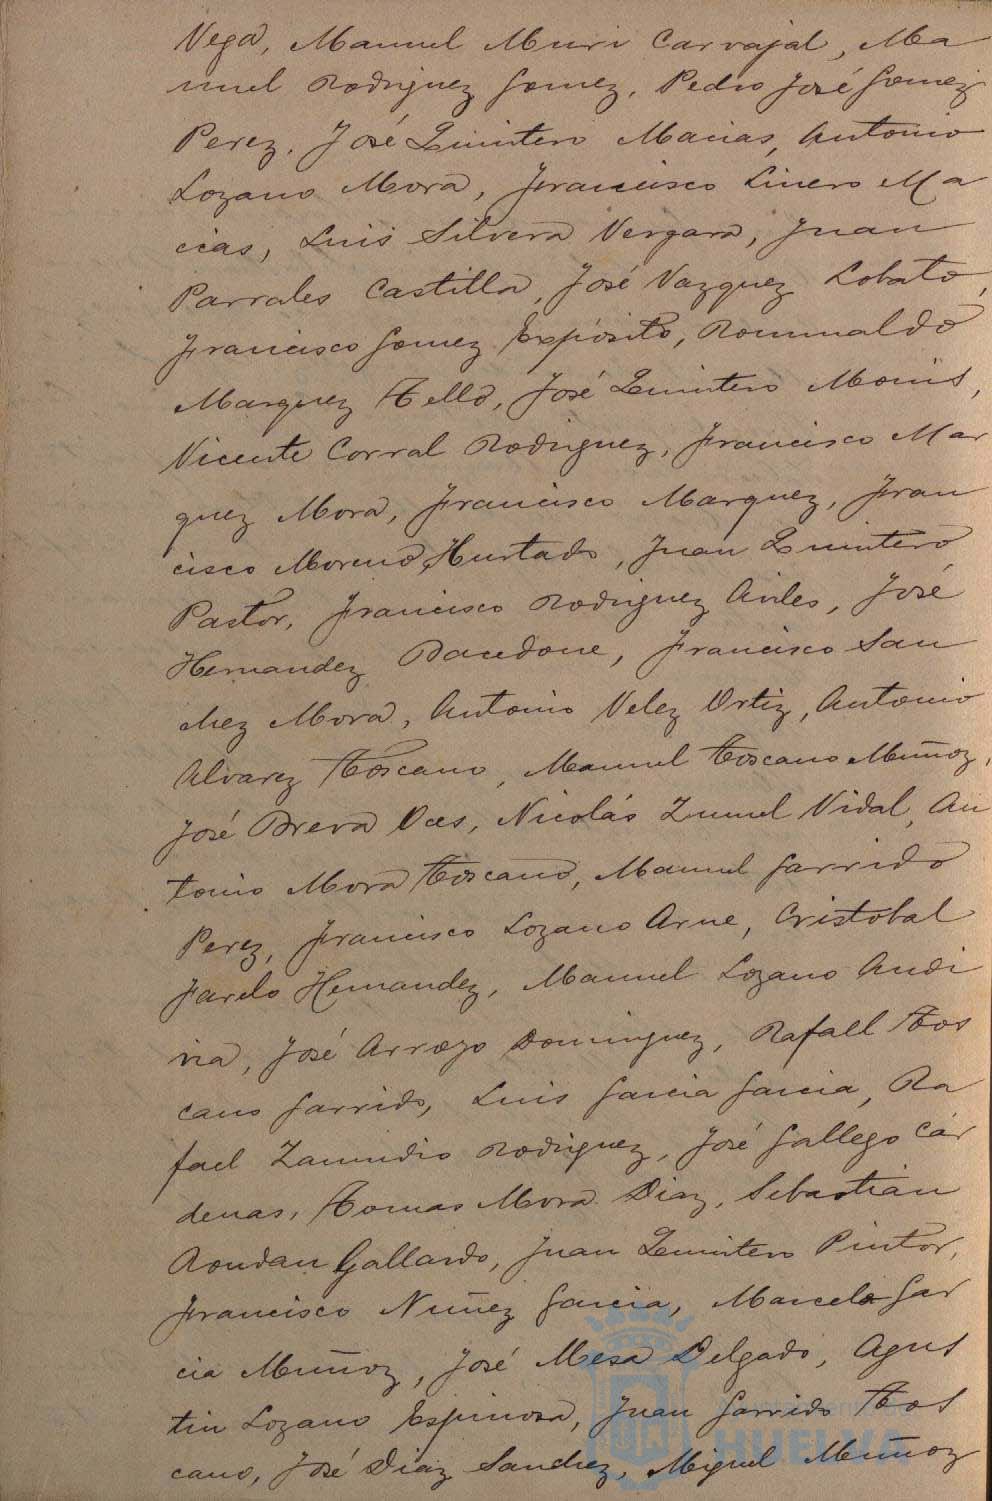 Vega, Manuel Muri Carvajal, Ma
nuel Rodriguez Gomez, Pedro José Gomez
Perez, José Quintero Macias, Antonio
Lozano Mora, Francisco Linero Ma
cias, Luis Silvera Vergara, Juan
Parrales Castilla, José Vazquez Lobato,
Francisco Gomez Expósito, Romualdo
Marquez Tello, José Quintero Monis,
Vicente Corral Rodriguez, Francisco Mar
quez Mora, Francisco Marquez, Fran
cisco Moreno Hurtado, Juan Quintero
Pastor, Francisco Rodriguez Aviles, José
Hernandez Bacedone, Francisco San
chez Mora, Antonio Velez Ortiz, Antonio
Alvarez Toscano, Manuel Toscano Muñoz,
José Breva Oces, Nicolás Zunel Vidal, An
tonio Mora Toscano, Manuel Garrido
Perez, Francisco Lozano Arne, Cristobal
Farelo Hernandez, Manuel Lozano Andi
via, José Arroyo Dominguez, Rafael Tos
cano Garrido, Luis Garcia Garcia, Ra
fael Zamudio Rodriguez, José Gallego Cár
denas, Tomas Mora Diaz, Sebastian
Roudan Gallardo, Juan Quintero Pintor,
Francisco Nuñez Garcia, Marcelo Gar
cia Muñoz, José Mesa Delgado, Agus
tin Lozano Espinosa, Juan Garrido Tos
cano, José Diaz Sanchez, Miguel Muñoz
Ayuntamiento de
HUELVA